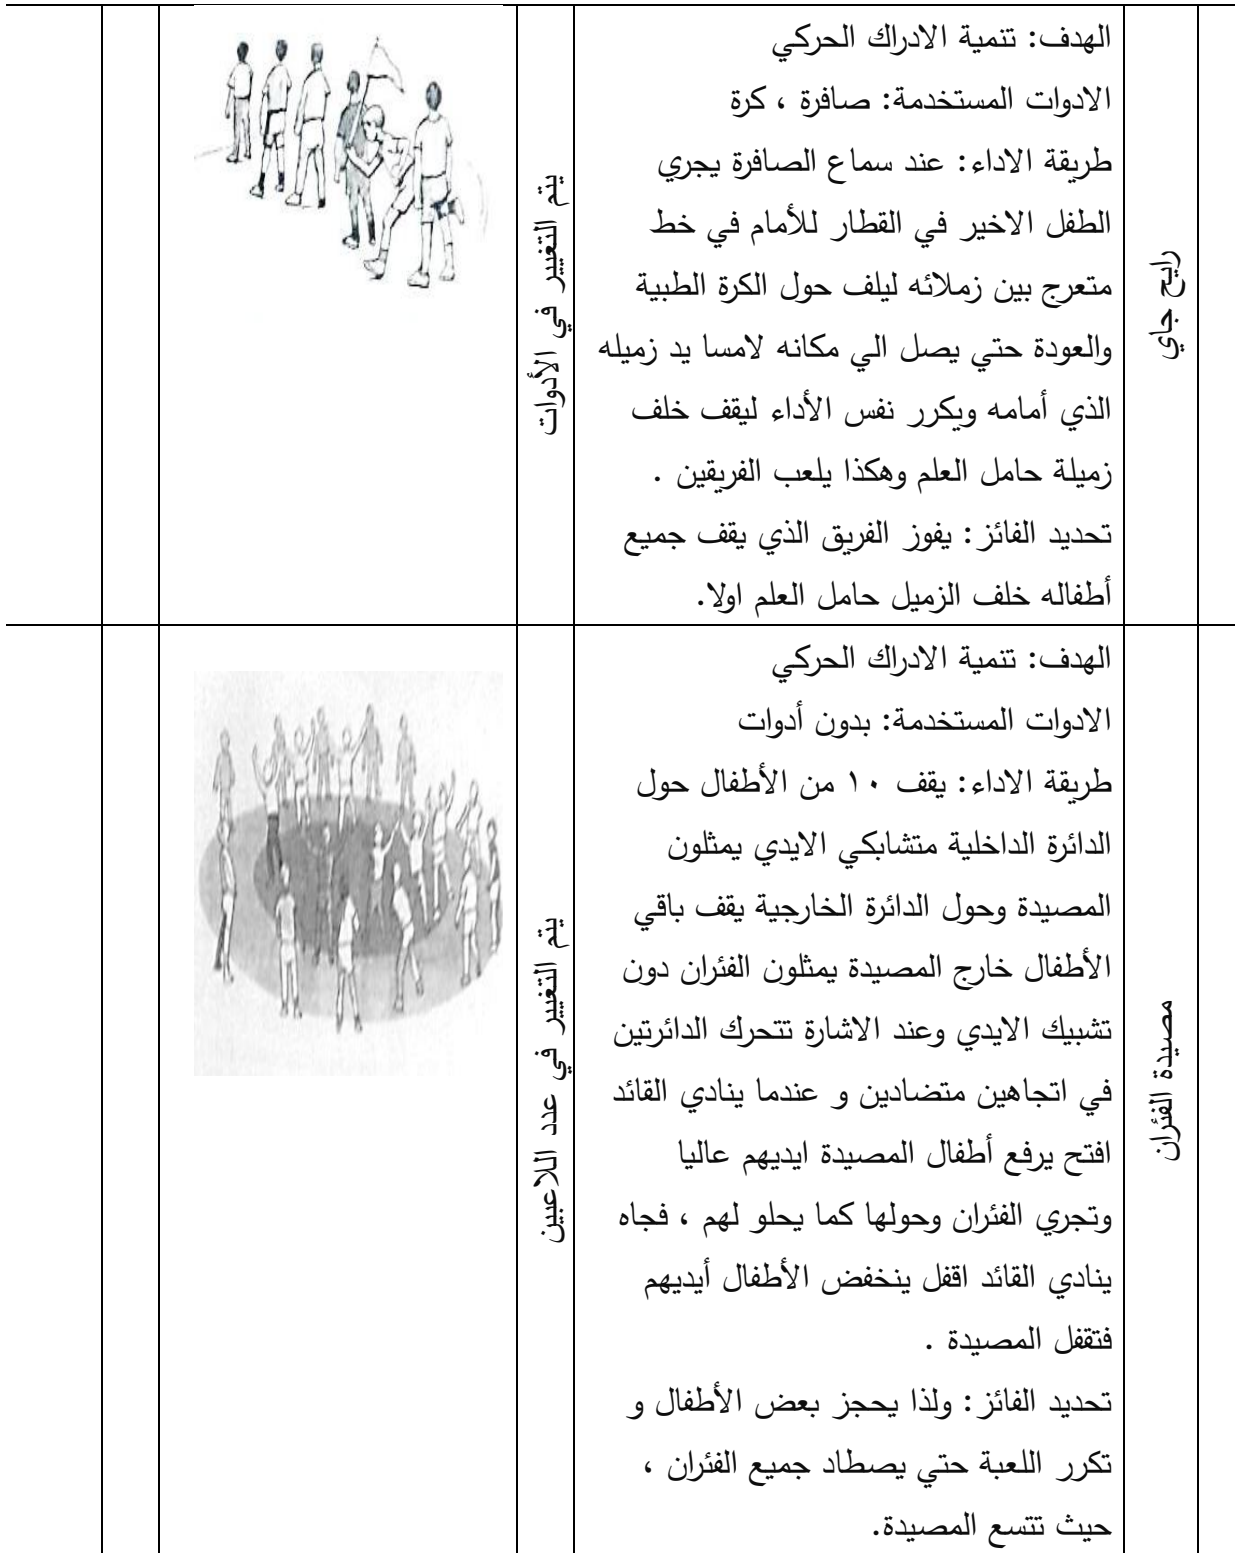 رايح جاي
الهدف: تنمية الادراك الحركي
الادوات المستخدمة: صافرة ، كرة
طريقة الاداء: عند سماع الصافرة يجري
الطفل الاخير في القطار للأمام في خط
متعرج بين زملائه ليلف حول الكرة الطبية
والعودة حتي يصل الي مكانه لامسا يد زميله
الذي أمامه ويكرر نفس الأداء ليقف خلف
زميلة حامل العلم وهكذا يلعب الفريقين .
تحديد الفائز: يفوز الفريق الذي يقف جميع
أطفاله خلف الزميل حامل العلم اولا.
يتم التغيير في الأدوات
مصيدة الفئران
الهدف: تنمية الادراك الحركي
الادوات المستخدمة: بدون أدوات
طريقة الاداء: يقف ١٠ من الأطفال حول
الدائرة الداخلية متشابكي الايدي يمثلون
المصيدة وحول الدائرة الخارجية يقف باقي
الأطفال خارج المصيدة يمثلون الفئران دون
تشبيك الايدي وعند الاشارة تتحرك الدائرتين
في اتجاهين متضادين و عندما ينادي القائد
افتح يرفع أطفال المصيدة ايديهم عاليا
وتجري الفئران وحولها كما يحلو لهم ، فجاه
ينادي القائد اقفل ينخفض الأطفال أيديهم
فتقفل المصيدة .
تحديد الفائز: ولذا يحجز بعض الأطفال و
تكرر اللعبة حتي يصطاد جميع الفئران ،
حيث تتسع المصيدة.
يتم التغيير في عدد اللاعبين